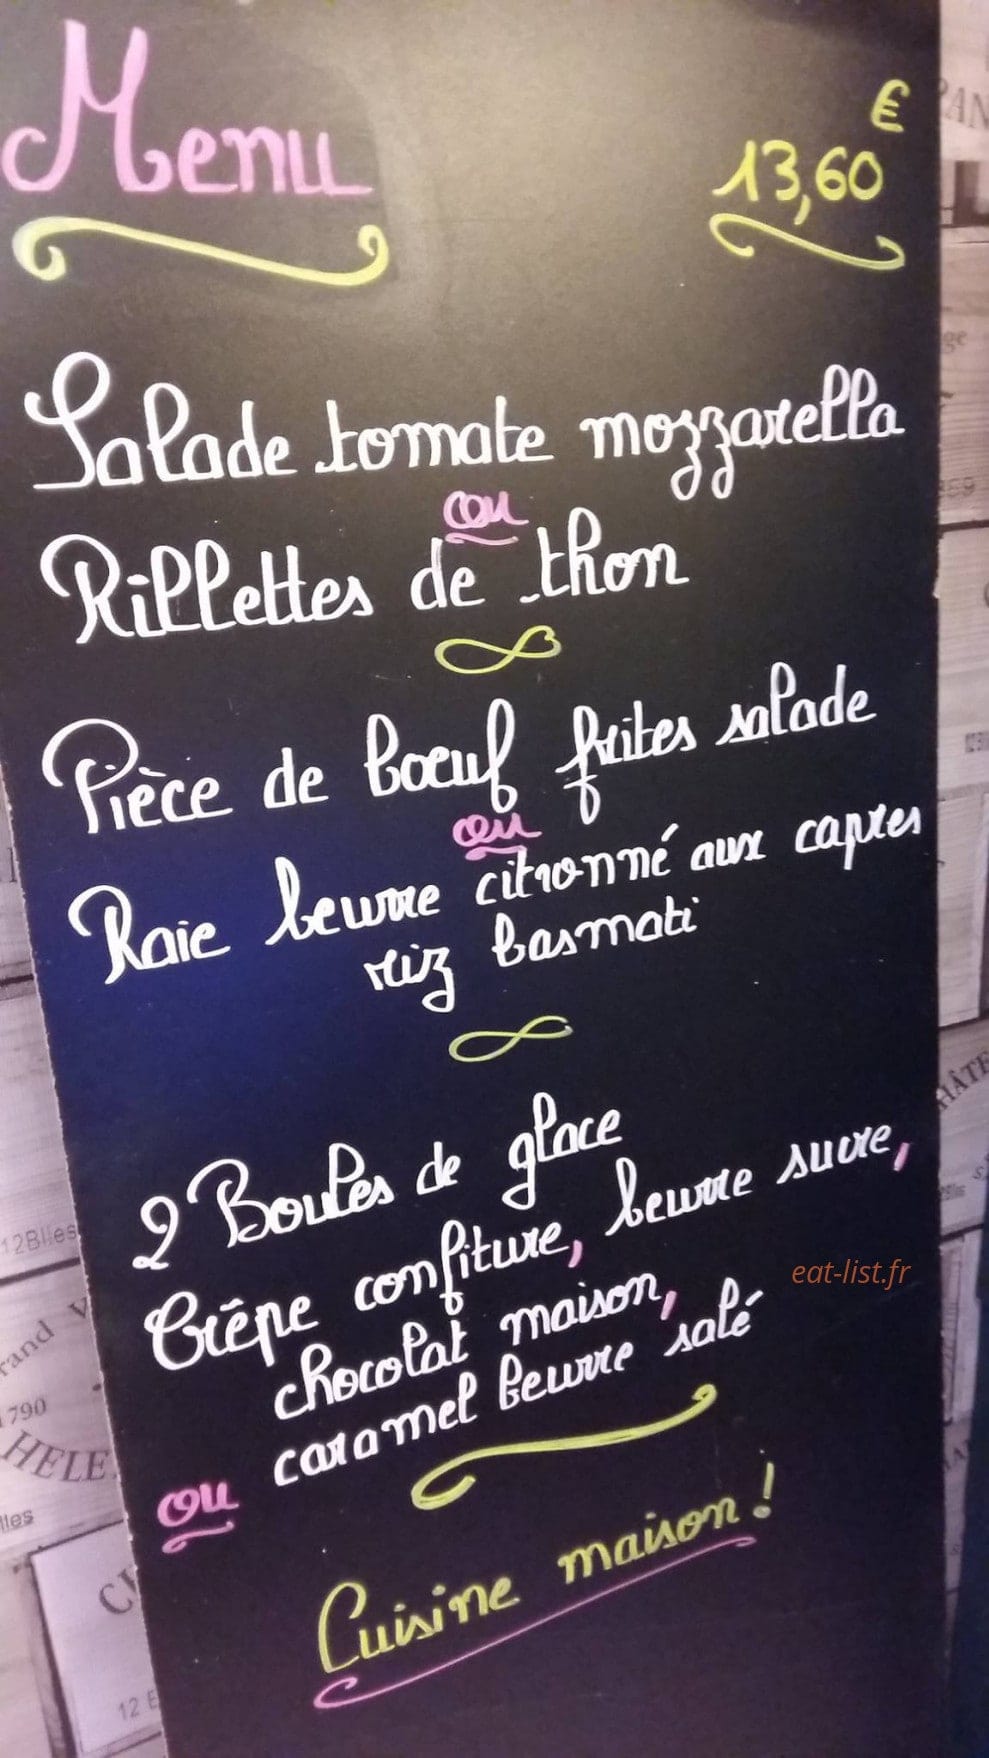 Menu
€
13,60
Salade tomate mozzarella
ou
Rillettes de thon
Pièce de bœuf frites salade
ou
Raie beurre citronné aux capres
riz basmati
2 Boules de glace
Crêpe confiture, beurre sucre,
chocolat maison,
caramel beurre salé
ou
Cuisine maison !
eat-list.fr
12Blles
1790
HELE
12 B